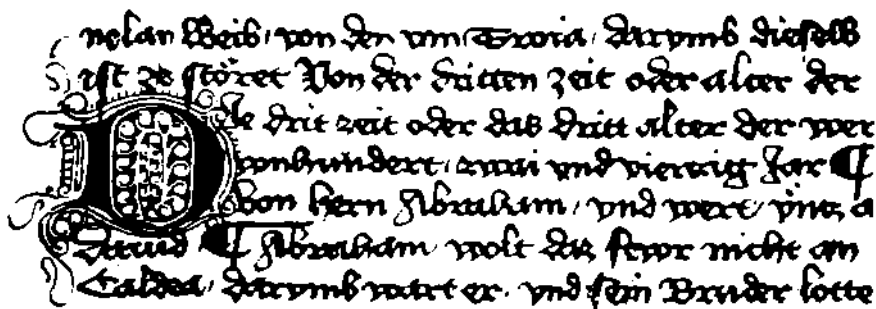 nelan Weib / von den von Troia / darvmb dieselb
ist ze störet Von der dritten zeit oder alter der
Die drit zeit oder das dritt alter der wer
vonhundert / zwai vnd viertzig Jar ¶
von hern Abraham / vnd wert / vntz a
Dauid ¶ Abraham / wolt daz fewr nicht an
Caldea / darvmb wart er / vnd sein Bruder lotte